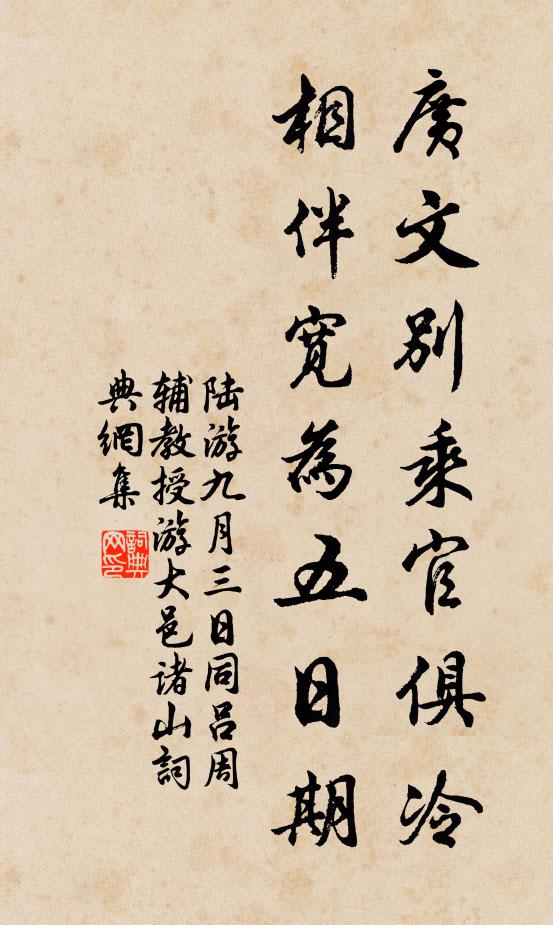 廣文別乘官俱冷
相伴寬為五日期
陆游九月三日同吕周
辅教授游大邑诸山詞
典網集
詞典
网印